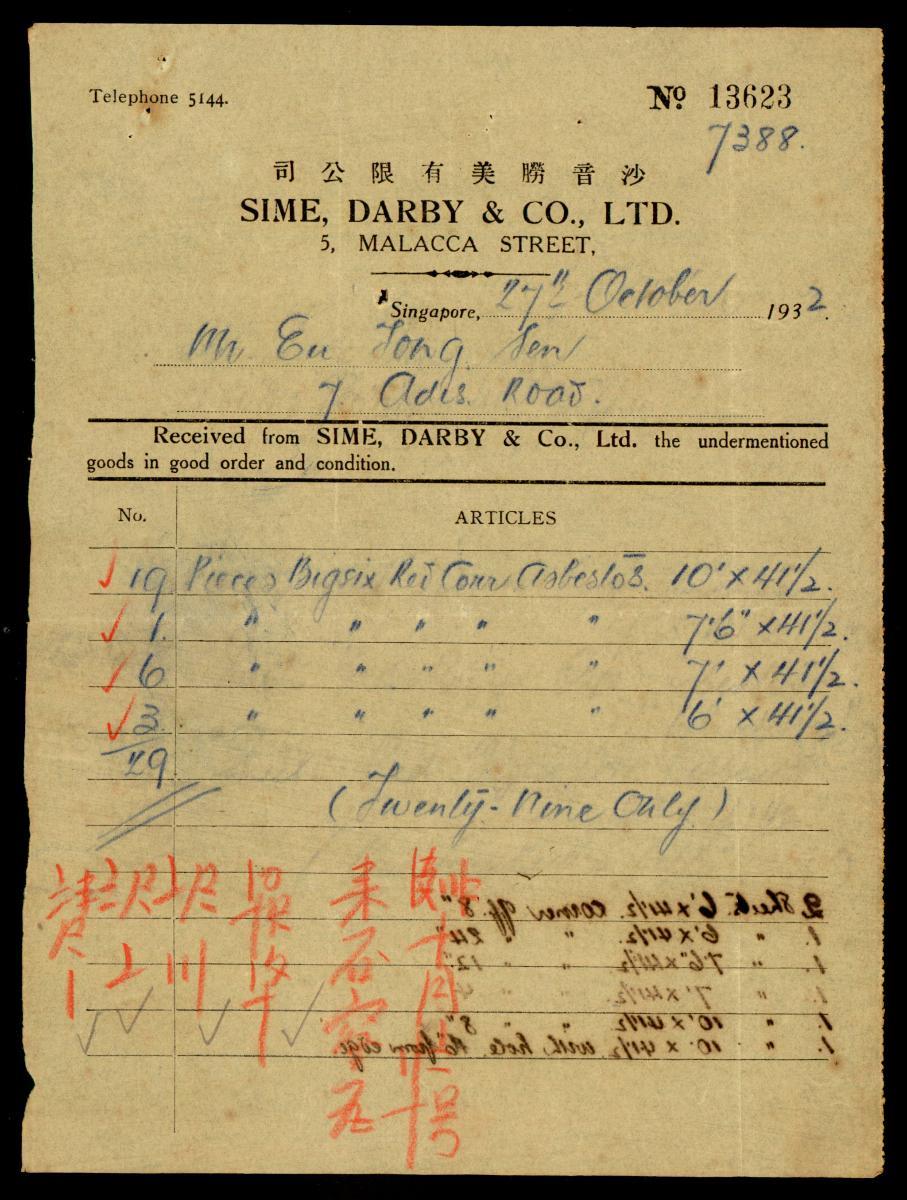 Telephone 5144.
Nº 13623
7388.
司公限有美勝音沙
SIME, DARBY & CO., LTD.
5, MALACCA STREET,
Singapore, 27th October 1932.
Mr Eu Tong Sen
7. Adis Road.
Received from SIME, DARBY & Co., Ltd. the undermentioned
goods in good order and condition.
No. ARTICLES
19 Pieces Bigsix Red Corr Asbestos. 10' x 41 1/2.
1. " " " " " 7'6" x 41 1/2.
6 " " " " " 7' x 41 1/2.
3. " " " " " 6' x 41 1/2.
29
(Twenty-Nine Only)
2 Sheets 6' x 41 1/2 corner off 8"
1. " 6' x 41 1/2 " " 24"
1. " 7'6" x 41 1/2 " " 12"
1. " 7' x 41 1/2 " " 4"
1. " 10' x 41 1/2 " " 8"
1. " 10' x 41 1/2 with hole from edge